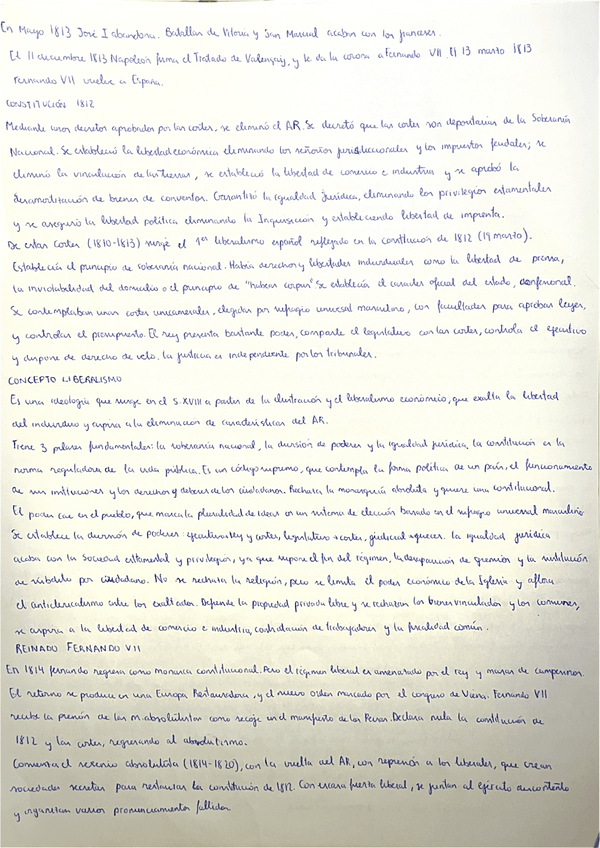 En Mayo 1813 José I abandona. Batallas de Vitoria y San Marcial acaban con los franceses.
El 11 diciembre 1813 Napoleón firma el Tratado de Valençaiy, y le da la corona a Fernando VII. El 13 marzo 1813
Fernando VII vuelve a España.
CONSTITUCIÓN 1812
Mediante unos decretos aprobados por las cortes, se eliminó el AR. Se decretó que las cortes son depositarias de la Soberanía
Nacional. Se estableció la libertad económica eliminando los señoríos jurisdiccionales y los impuestos feudales; se
eliminó la vinculación de las tierras, se estableció la libertad de comercio e industria y se aprobó la
desamortización de bienes de conventos. Garantizó la igualdad Jurídica, eliminando los privilegios estamentales
y se aseguró la libertad política eliminando la Inquisición y estableciendo libertad de imprenta.
De estas Cortes (1810-1813) surge el 1er liberalismo español reflejado en la constitución de 1812 (19 marzo).
Establecía el principio de soberanía nacional. Había derechos y libertades individuales como la libertad de prensa,
la inviolabilidad del domicilio o el principio de "habeas corpus" Se establecía el carácter oficial del estado, confesional.
Se contemplaban unas cortes unicamerales, elegidas por sufragio universal masculino, con facultades para aprobar leyes,
y controlar el presupuesto. El rey presenta bastante poder, comparte el legislativo con las cortes, controla el ejecutivo
y dispone de derecho de veto. La justicia es independiente por los tribunales.
CONCEPTO LIBERALISMO
Es una ideología que surge en el S.XVIII a partir de la ilustración y el liberalismo económico, que exalta la libertad
del individuo y aspira a la eliminación de características del AR.
Tiene 3 pilares fundamentales: la soberanía nacional, la división de poderes y la igualdad jurídica, la constitución es la
norma reguladora de la vida pública. Es un código supremo, que contempla la forma política de un país, el funcionamiento
de sus instituciones y los derechos y deberes de los ciudadanos. Rechaza la monarquía absoluta y quiere una constitucional.
El poder cae en el pueblo, que marca la pluralidad de ideas en un sistema de elección basado en el sufragio universal masculino
Se establece la división de poderes: ejecutivo→rey y cortes, legislativo→cortes, judicial→jueces. la igualdad jurídica
acaba con la Sociedad estamental y privilegios, ya que supone el fin del régimen, la desaparición de gremios y la sustitución
de súbdito por ciudadano. No se rechaza la religión, pero se limita el poder económico de la Iglesia y aflora
el anticlericalismo entre los exaltados. Defiende la propiedad privada libre y se rechazan los bienes vinculados y los comunes,
se aspira a la libertad de comercio e industria, contratación de trabajadores y la fiscalidad común.
REINADO FERNANDO VII
En 1814 fernando regresa como monarca constitucional. Pero el régimen liberal es amenazado por el rey y masas de campesinos.
El retorno se produce en una Europa Restauradora, y el nuevo orden marcado por el congreso de Viena. Fernando VII
recibe la presión de los m.absolutistas como recoge en el manifiesto de los Persas. Declara nula la constitución de
1812 y las cortes, regresando al absolutismo.
Comienza el sexenio absolutista (1814-1820), con la vuelta del AR, con represión a los liberales, que crean
sociedades secretas para restaurar la constitución de 1812. Con escasa fuerza liberal, se juntan al ejército descontento
y organizan varios pronunciamientos fallidos.